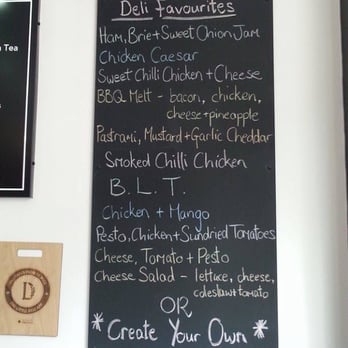 Deli Favourites
Ham, Brie + Sweet Onion Jam
Chicken Caesar
Sweet Chilli Chicken + Cheese
BBQ Melt - bacon, chicken,
cheese + pineapple
Pastrami, Mustard + Garlic Cheddar
Smoked Chilli Chicken
B.L.T.
Chicken + Mango
Pesto, Chicken + Sundried Tomatoes
Cheese, Tomato + Pesto
Cheese Salad - lettuce, cheese,
coleslaw + tomato
OR
*Create Your Own*
Tea
D